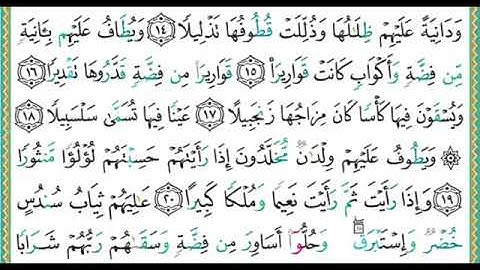 وَدَانِيَةً عَلَيْهِمْ ظِلَـٰلُهَا وَذُلِّلَتْ قُطُوفُهَا تَذْلِيلًا ١٤ وَيُطَافُ عَلَيْهِم بِـَٔانِيَةٍ
مِّن فِضَّةٍ وَأَكْوَابٍ كَانَتْ قَوَارِيرَا۠ ١٥ قَوَارِيرَا۟ مِن فِضَّةٍ قَدَّرُوهَا تَقْدِيرًا ١٦
وَيُسْقَوْنَ فِيهَا كَأْسًا كَانَ مِزَاجُهَا زَنجَبِيلًا ١٧ عَيْنًا فِيهَا تُسَمَّىٰ سَلْسَبِيلًا ١٨
۞ وَيَطُوفُ عَلَيْهِمْ وِلْدَٰنٌ مُّخَلَّدُونَ إِذَا رَأَيْتَهُمْ حَسِبْتَهُمْ لُؤْلُؤًا مَّنثُورًا
١٩ وَإِذَا رَأَيْتَ ثَمَّ رَأَيْتَ نَعِيمًا وَمُلْكًا كَبِيرًا ٢٠ عَـٰلِيَهُمْ ثِيَابُ سُندُسٍ
خُضْرٌ وَإِسْتَبْرَقٌ ۖ وَحُلُّوٓا۟ أَسَاوِرَ مِن فِضَّةٍ وَسَقَىٰهُمْ رَبُّهُمْ شَرَابًا